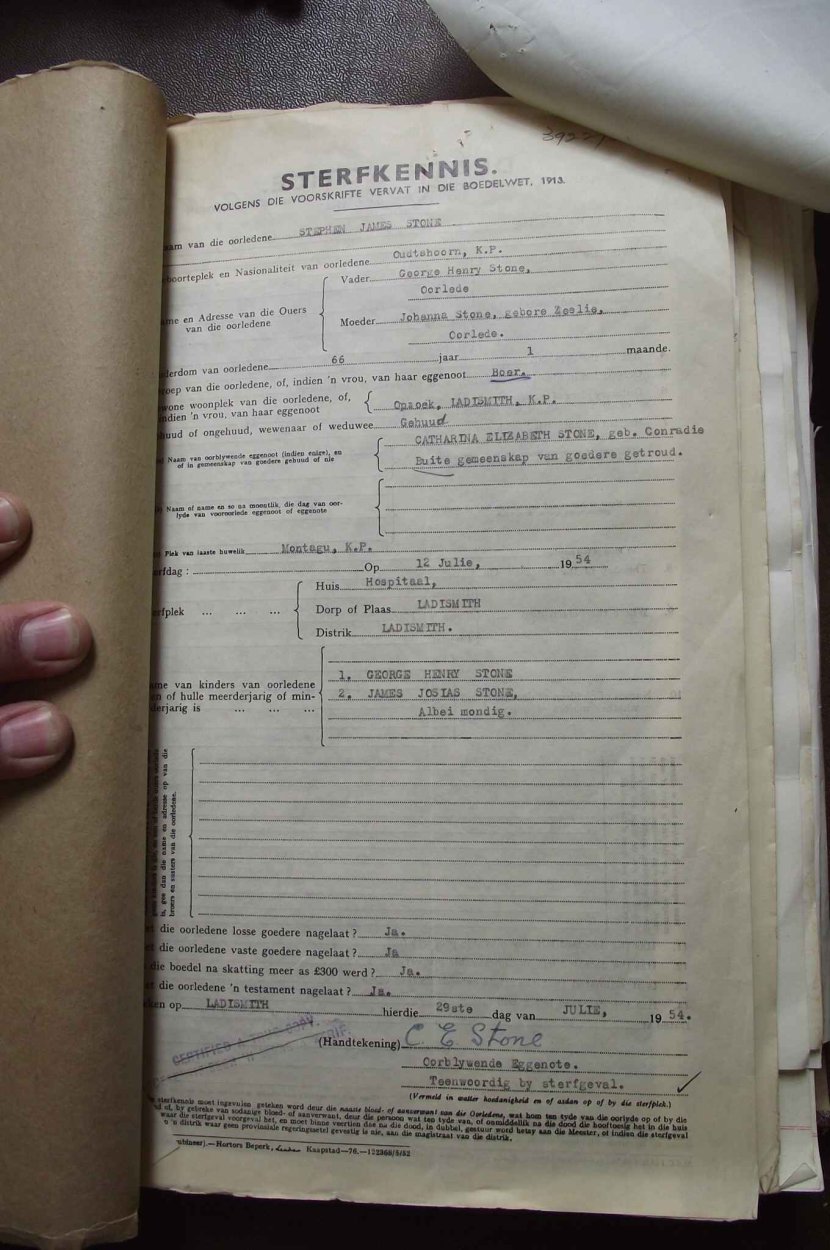 STERFKENNIS.
VOLGENS DIE VOORSKRIFTE VERVAT IN DIE BOEDELWET, 1913.
aam van die oorledene STEPHEN JAMES STONE
boorteplek en Nasionaliteit van oorledene Oudtshoorn, K.P.
Vader George Henry Stone,
Oorlede
me en Adresse van die Ouers
van die oorledene
Moeder Johanna Stone, gebore Zeelie,
Oorlede.
derdom van oorledene 66 jaar 1 maande.
roep van die oorledene, of, indien 'n vrou, van haar eggenoot Boer.
wone woonplek van die oorledene, of,
indien 'n vrou, van haar eggenoot
Opzoek, LADISMITH, K.P.
huud of ongehuud, wewenaar of weduwee Gehuud
CATHARINA ELIZABETH STONE, geb. Conradie
Naam van oorblywende eggenoot (indien enige), en
of in gemeenskap van goedere gehuud of nie
Buite gemeenskap van goedere getroud.
Naam of name en so na moontlik, die dag van oor-
lyde van vooroorlede eggenoot of eggenote
Plek van laaste huwelik Montagu, K.P.
erfdag: Op 12 Julie, 1954
Huis Hospitaal,
erfplek ... ... ... Dorp of Plaas LADISMITH
Distrik LADISMITH.
me van kinders van oorledene
en of hulle meerderjarig of min-
derjarig is ... ... ...
1. GEORGE HENRY STONE
2. JAMES JOSIAS STONE,
Albei mondig.
is, gee dan die name en adresse op van die
broers en susters van die oorledene.
die oorledene losse goedere nagelaat? Ja.
die oorledene vaste goedere nagelaat? Ja
die boedel na skatting meer as £300 werd? Ja.
die oorledene 'n testament nagelaat? Ja.
ken op LADISMITH hierdie 29ste dag van JULIE, 1954.
CERTIFIED A TRUE COPY.
(Handtekening) C E Stone
Oorblywende Eggenote.
Teenwoordig by sterfgeval.
(Vermeld in watter hoedanigheid en of asdan op of by die sterfplek.)
sterfkennis moet ingevulen geteken word deur die naaste bloed- of aanverwant aan die Oorledene, wat hom ten tyde van die oorlyde op of by die
of, by gebreke van sodanige bloed- of aanverwant, deur die persoon wat ten tyde van, of onmiddellik na die dood die hooftoesig het in die huis
waar die sterfgeval voorgeval het, en moet binne veertien dae na die dood, in dubbel, gestuur word hetsy aan die Meester, of indien die sterfgeval
'n distrik waar geen provinsiale regeringssetel gevestig is nie, aan die magistraat van die distrik.
Hortors Beperk, Kaapstad—76.—122368/5/52